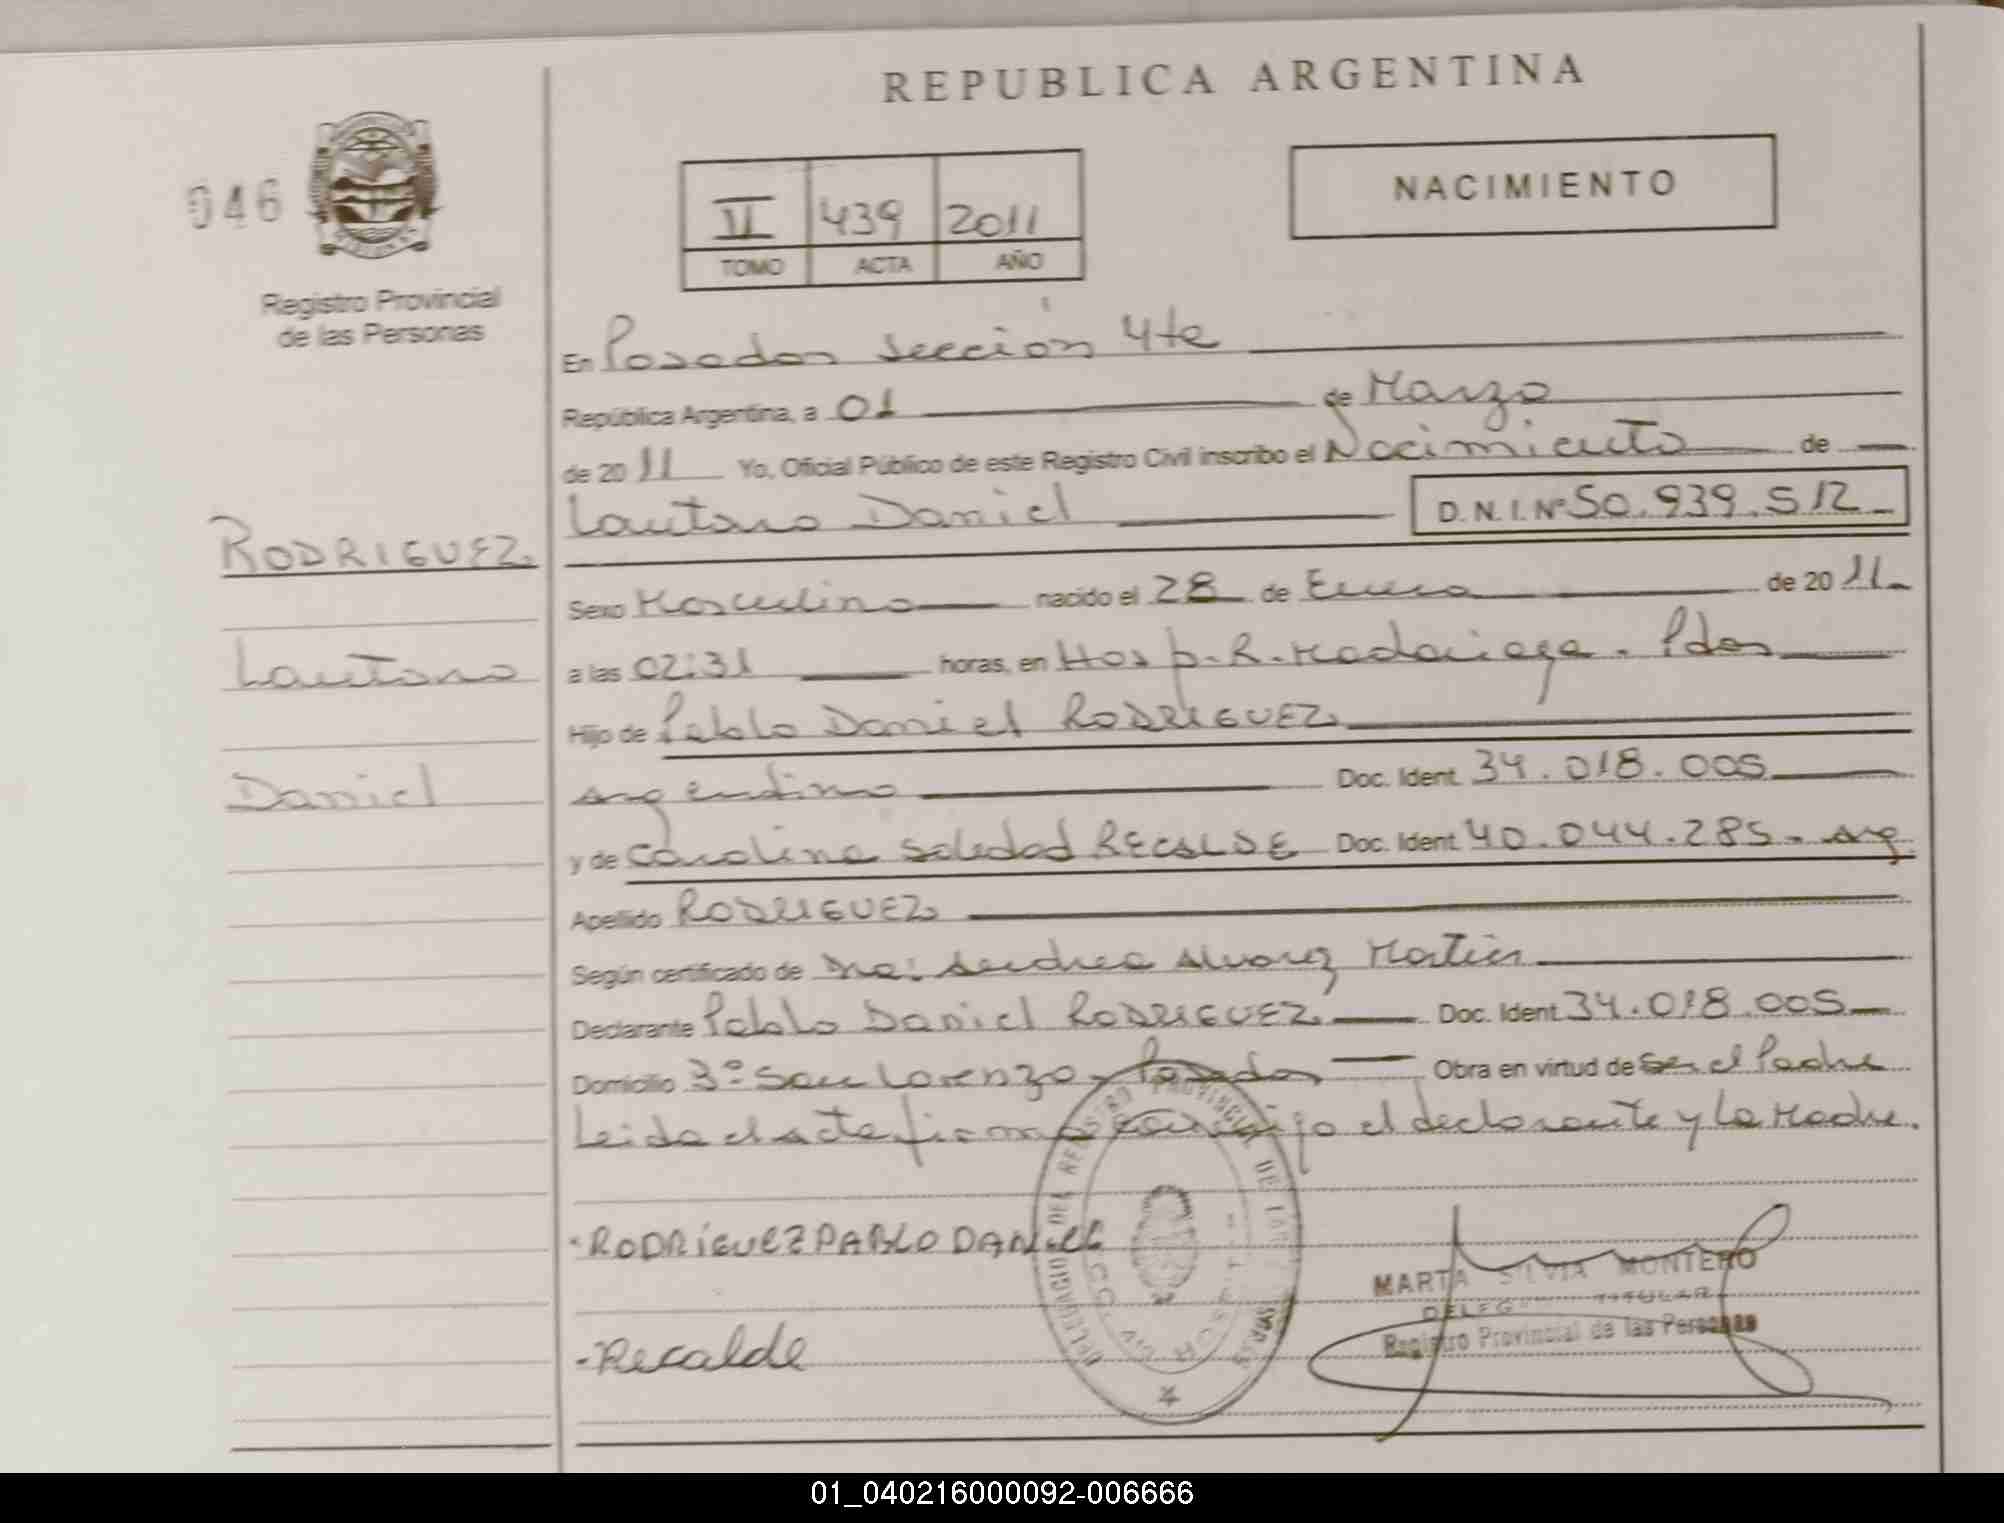 REPUBLICA ARGENTINA
046
NACIMIENTO
II 439 2011
TOMO ACTA AÑO
Registro Provincial
de las Personas
En Posadas sección 4ta
República Argentina, a 01 de Marzo
de 2011 Yo, Oficial Público de este Registro Civil inscribo el Nacimiento de
Lautaro Daniel D.N.I.Nº 50.939.512
RODRIGUEZ
Sexo Masculino nacido el 28 de Enero de 2011
Lautaro
a las 02:31 horas, en Hosp. R. Madariaga. Pdas
Hijo de Pablo Daniel RODRIGUEZ
Daniel
Argentino Doc. Ident 34.018.005
y de Carolina Soledad RECALDE Doc. Ident 40.044.285. Arg
Apellido RODRIGUEZ
Según certificado de Alvarez Martin
Declarante Pablo Daniel RODRIGUEZ Doc. Ident 34.018.005
Domicilio 3º San Lorenzo. Posadas Obra en virtud de ser el Padre
Leida el acta firma conmigo el declarante y la Madre.
RODRiGUEZ PABLO DANiEL
Recalde
DELEGACIO DEL REGISTRO PROVINCIAL DE LAS
MARTA SILVIA MONTERO
TITULAR
Registro Provincial de las Personas
01_040216000092-006666